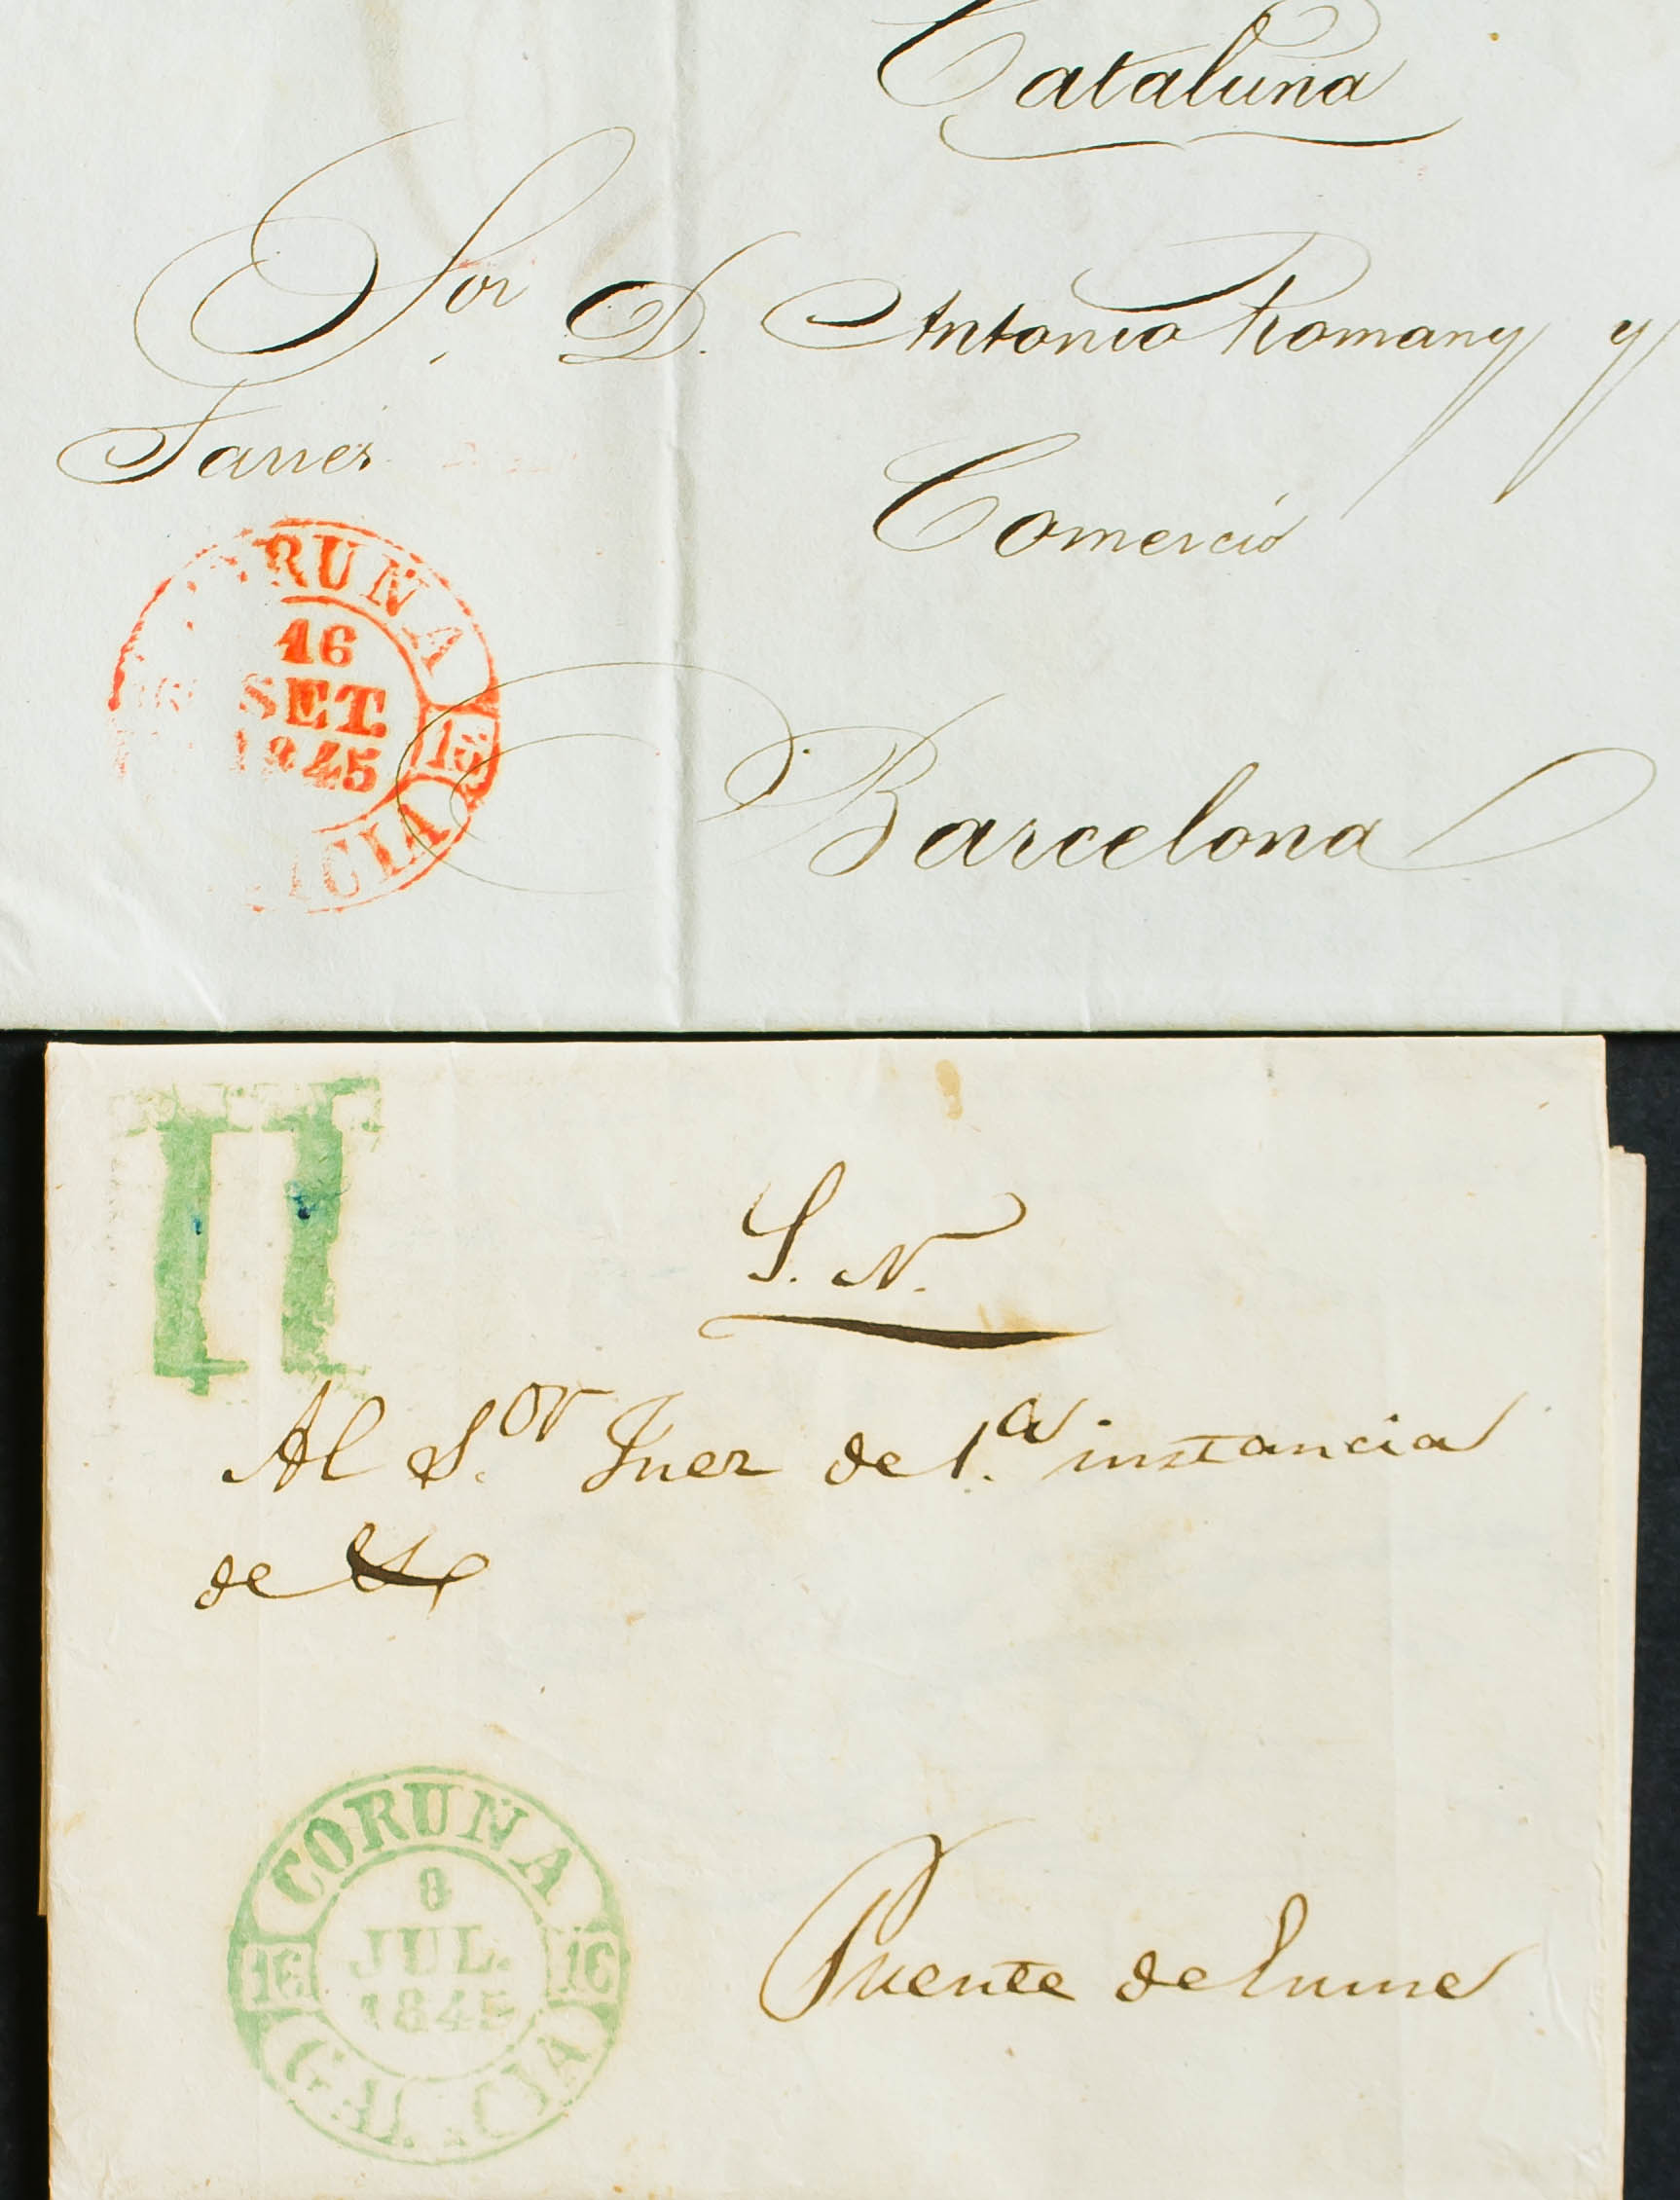 Cataluña
Sor. D. Antonio Romany y
Farres
Comercio
CORUNA
16
SET.
1845
16
GALICIA
Barcelona
S. N.
Al S.or Juez de 1.a instancia
de
CORUNA
8
JUL.
1845
16 16
GALICIA
Puente de hume